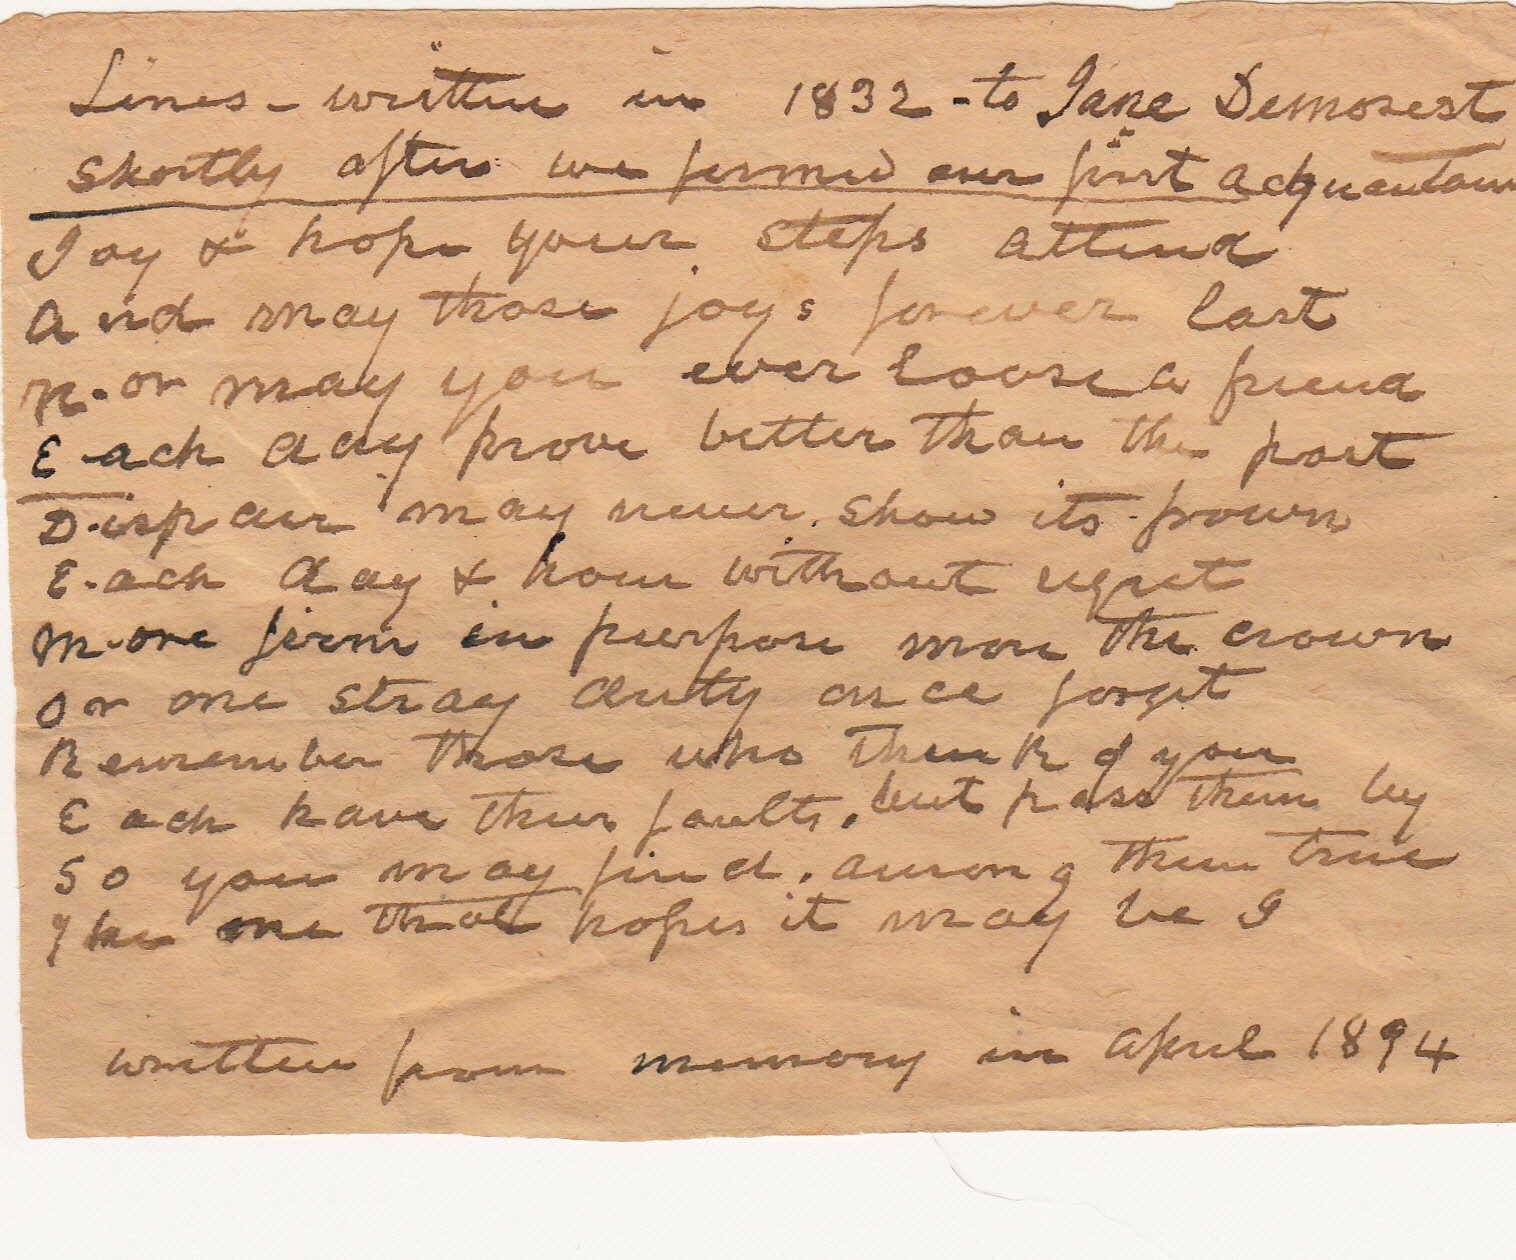 Lines - written in 1832 - to Jane Demorest
Shortly after we formed our first acquaintan
Joy & hope your steps attend
And may those joys forever last
N-or may you ever loose a friend
E-ach day prove better than the past
D-ispair may never show its frown
E-ach day & hour without regret
M-ore firm in purpose more the crown
Or one stray duty once forget
Remember those who think of you
Each have their faults, but pass them by
So you may find among them true
The one that hopes it may be I
written from memory in April 1894